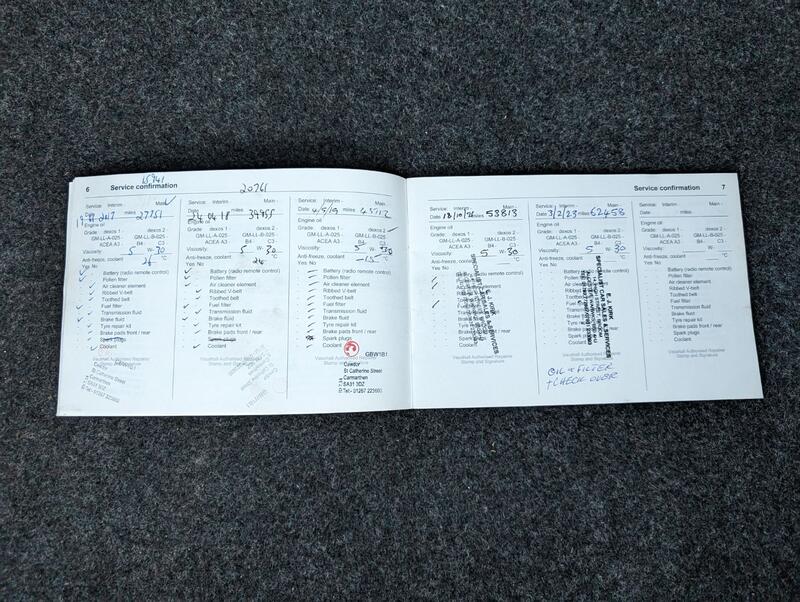 6 Service confirmation
20761
Service: Interim - Main -
27751
Engine oil
Grade: dexos 1 - dexos 2 -
GM-LL-A-025 - GM-LL-B-025 -
ACEA A3 - B4 - C3 -
Viscosity: 5 W- 30
Anti-freeze, coolant °C
Yes No
Battery (radio remote control)
Pollen filter
Air cleaner element
Ribbed V-belt
Toothed belt
Fuel filter
Transmission fluid
Brake fluid
Tyre repair kit
Brake pads front / rear
Spark plugs
Coolant
Vauxhall Authorised Repairer
Stamp and Signature
Cawdor
St Catherine Street
Carmarthen
SA31 3DZ
Service: Interim - Main -
04 18 miles 34955
Engine oil
Grade: dexos 1 - dexos 2 -
GM-LL-A-025 - GM-LL-B-025 -
ACEA A3 - B4 - C3 -
Viscosity: 5 W- 30
Anti-freeze, coolant °C
Yes No
Battery (radio remote control)
Pollen filter
Air cleaner element
Ribbed V-belt
Toothed belt
Fuel filter
Transmission fluid
Brake fluid
Tyre repair kit
Brake pads front / rear
Spark plugs
Coolant
Vauxhall Authorised Repairer
Stamp and Signature
Service: Interim - Main -
Date: 4/5/19 miles
Engine oil
Grade: dexos 1 - dexos 2 -
GM-LL-A-025 - GM-LL-B-025 -
ACEA A3 - B4 - C3 -
Viscosity: 5 W- 30
Anti-freeze, coolant -15 °C
Yes No
Battery (radio remote control)
Pollen filter
Air cleaner element
Ribbed V-belt
Toothed belt
Fuel filter
Transmission fluid
Brake fluid
Tyre repair kit
Brake pads front / rear
Spark plugs
Coolant
GBW181
Vauxhall Authorised Repairer
Stamp and Signature
Cawdor
St Catherine Street
Carmarthen
SA31 3DZ
Tel:- 01267 223600
Service confirmation 7
Service: Interim - Main -
Date: 18/10/ miles 53813
Engine oil
Grade: dexos 1 - dexos 2 -
GM-LL-A-025 - GM-LL-B-025 -
ACEA A3 - B4 - C3 -
Viscosity: 5 W- 30
Anti-freeze, coolant °C
Yes No
Battery (radio remote control)
Pollen filter
Air cleaner element
Ribbed V-belt
Toothed belt
Fuel filter
Transmission fluid
Brake fluid
Tyre repair kit
Brake pads front / rear
Spark plugs
Coolant
Vauxhall Authorised Repairer
Stamp and Signature
Service: Interim - Main -
Date: 3/2/23 miles 62458
Engine oil
Grade: dexos 1 - dexos 2 -
GM-LL-A-025 - GM-LL-B-025 -
ACEA A3 - B4 - C3 -
Viscosity: 5 W- 30
Anti-freeze, coolant °C
Yes No
Battery (radio remote control)
Pollen filter
Air cleaner element
Ribbed V-belt
Toothed belt
Fuel filter
Transmission fluid
Brake fluid
Tyre repair kit
Brake pads front / rear
Spark plugs
Coolant
E. J. KIRK
SPECIALIST CAR SALES & SERVICES
Vauxhall Authorised Repairer
Stamp and Signature
OIL + FILTER
+ CHECK OVER
Service: Interim - Main -
Date: miles
Engine oil
Grade: dexos 1 - dexos 2 -
GM-LL-A-025 - GM-LL-B-025 -
ACEA A3 - B4 - C3 -
Viscosity: W-
Anti-freeze, coolant °C
Yes No
Battery (radio remote control)
Pollen filter
Air cleaner element
Ribbed V-belt
Toothed belt
Fuel filter
Transmission fluid
Brake fluid
Tyre repair kit
Brake pads front / rear
Spark plugs
Coolant
Vauxhall Authorised Repairer
Stamp and Signature